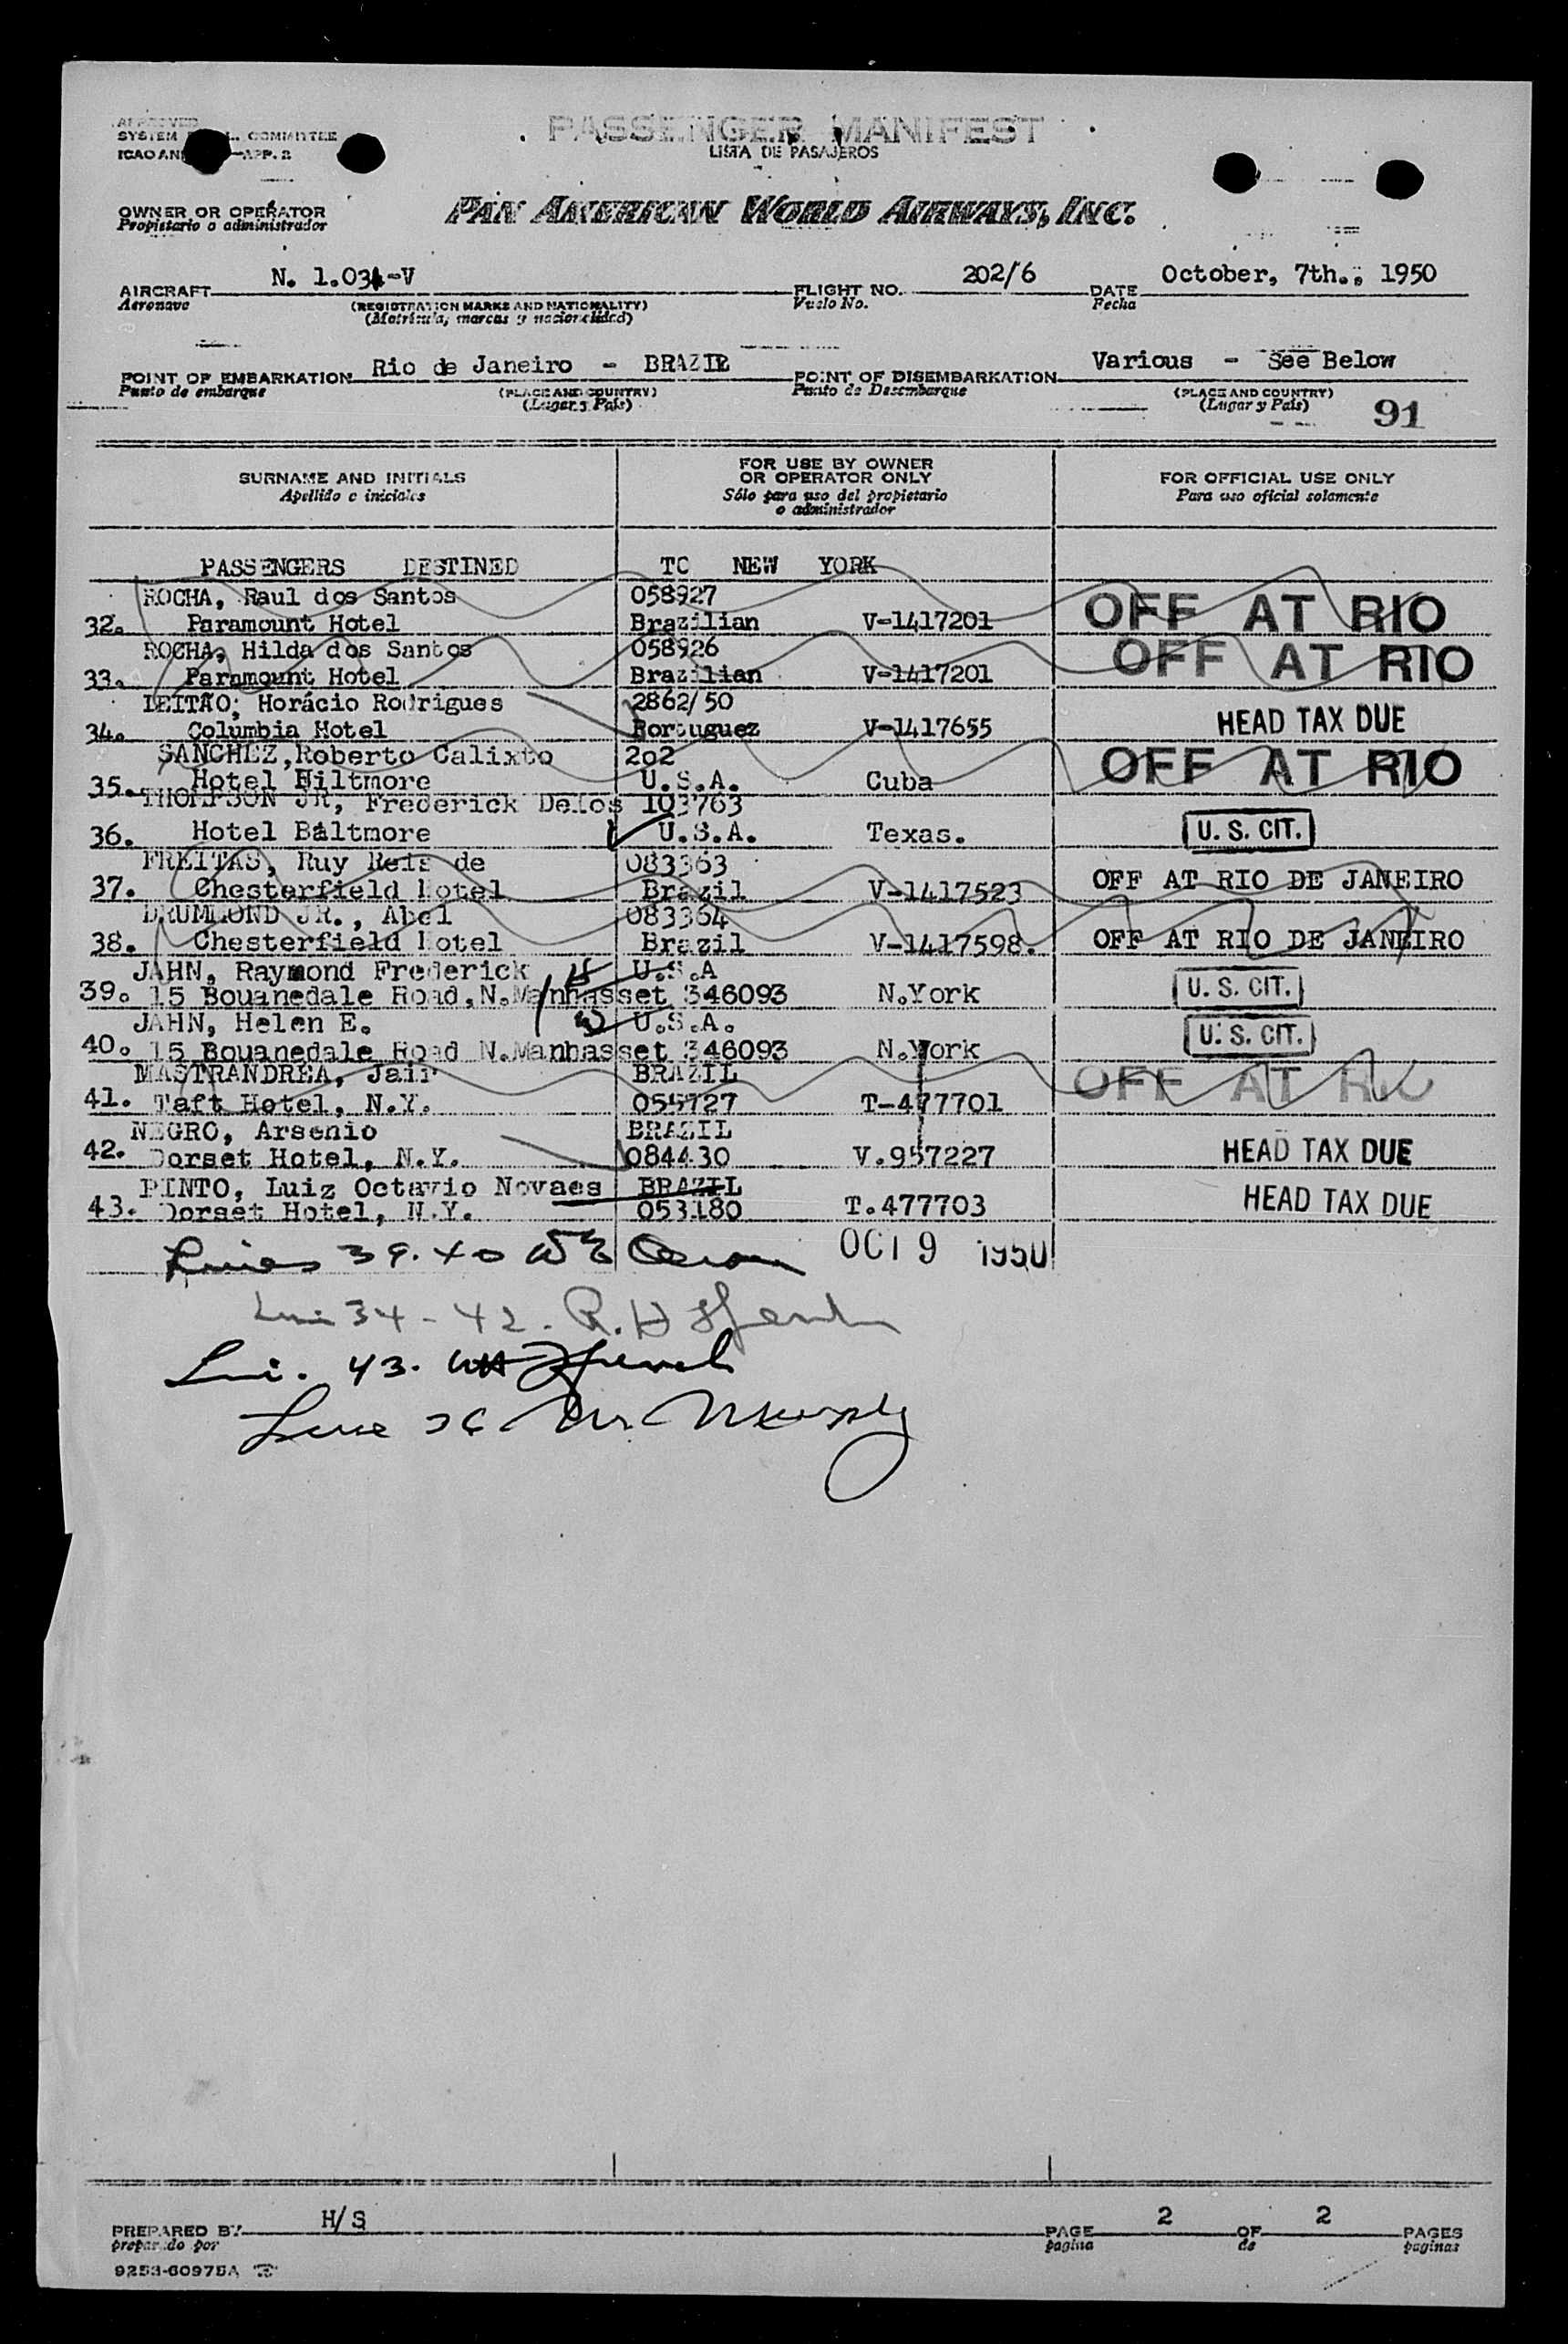 APPROVED
SYSTEM COMMITTEE
ICAO AN APP. 2
PASSENGER MANIFEST
LISTA DE PASAJEROS
OWNER OR OPERATOR
Propietario o administrador
PAN AMERICAN WORLD AIRWAYS, INC.
AIRCRAFT N. 1.034-V FLIGHT NO. 202/6 DATE October, 7th., 1950
Aeronave (REGISTRATION MARKS AND NATIONALITY) Vuelo No. Fecha
(Matrícula, marcas y nacionalidad)
POINT OF EMBARKATION Rio de Janeiro - BRAZIL POINT OF DISEMBARKATION Various - See Below
Punto de embarque (PLACE AND COUNTRY) Punto de Desembarque (PLACE AND COUNTRY)
(Lugar y País) (Lugar y País) 91
SURNAME AND INITIALS FOR USE BY OWNER OR OPERATOR ONLY FOR OFFICIAL USE ONLY
Apellido e iniciales Sólo para uso del propietario o administrador Para uso oficial solamente
PASSENGERS DESTINED TO NEW YORK
ROCHA, Raul dos Santos 058927
32. Paramount Hotel Brazilian V-1417201 OFF AT RIO
ROCHA, Hilda dos Santos 058926
33. Paramount Hotel Brazilian V-1417201 OFF AT RIO
LEITÃO, Horácio Rodrigues 2862/50
34. Columbia Hotel Portuguez V-1417655 HEAD TAX DUE
SANCHEZ, Roberto Calixto 202
35. Hotel Biltmore U.S.A. Cuba OFF AT RIO
THOMPSON JR, Frederick Delos 103763
36. Hotel Baltmore U.S.A. Texas. U. S. CIT.
FREITAS, Ruy Reis de 083363
37. Chesterfield Hotel Brazil V-1417523 OFF AT RIO DE JANEIRO
DRUMMOND JR., Abel 083364
38. Chesterfield Hotel Brazil V-1417598. OFF AT RIO DE JANEIRO
JAHN, Raymond Frederick U.S.A
39. 15 Bouanedale Road, N.Manhasset 346093 N.York U. S. CIT.
JAHN, Helen E. U.S.A.
40. 15 Bouanedale Road N.Manhasset 346093 N.York U. S. CIT.
MASTRANDREA, Jair BRAZIL
41. Taft Hotel, N.Y. 055727 T-477701 OFF AT RIO
NEGRO, Arsenio BRAZIL
42. Dorset Hotel, N.Y. 084430 V.957227 HEAD TAX DUE
PINTO, Luiz Octavio Novaes BRAZIL
43. Dorset Hotel, N.Y. 053180 T.477703 HEAD TAX DUE
Lines 39. 40 OCT 9 1950
34 - 42. R. H
43.
Line 36 Murphy
PREPARED BY H/S PAGE 2 OF 2 PAGES
preparado por pagina de paginas
9253-60975A